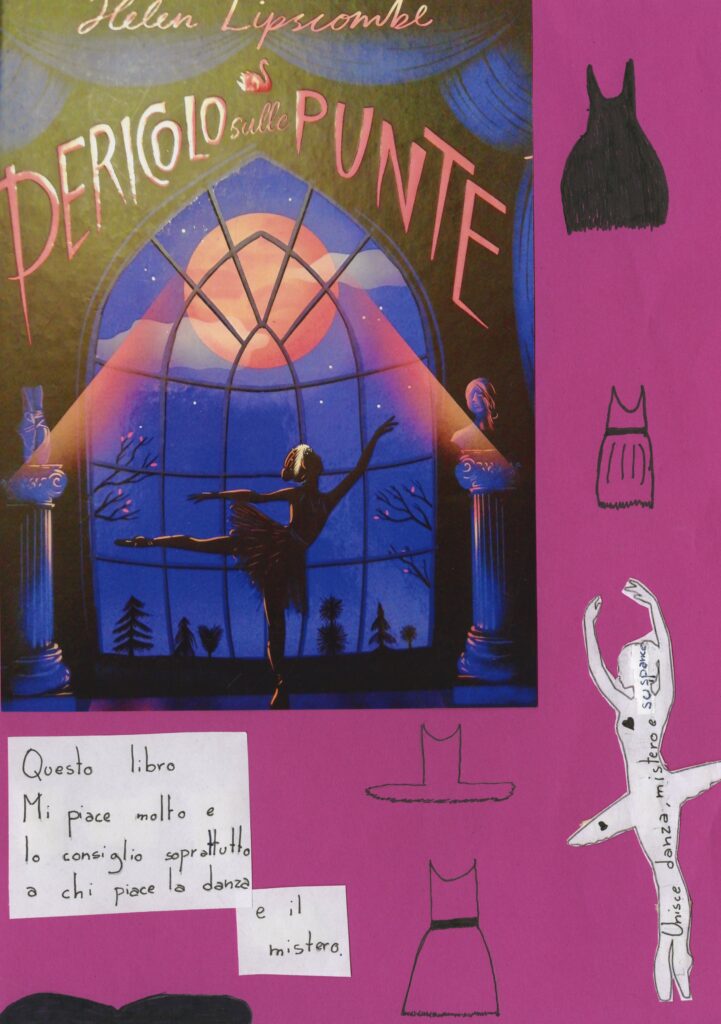 Helen Lipscombe
PERICOLO sulle PUNTE
Questo libro
Mi piace molto e
lo consiglio soprattutto
a chi piace la danza
e il
mistero.
Unisce danza, mistero e suspance